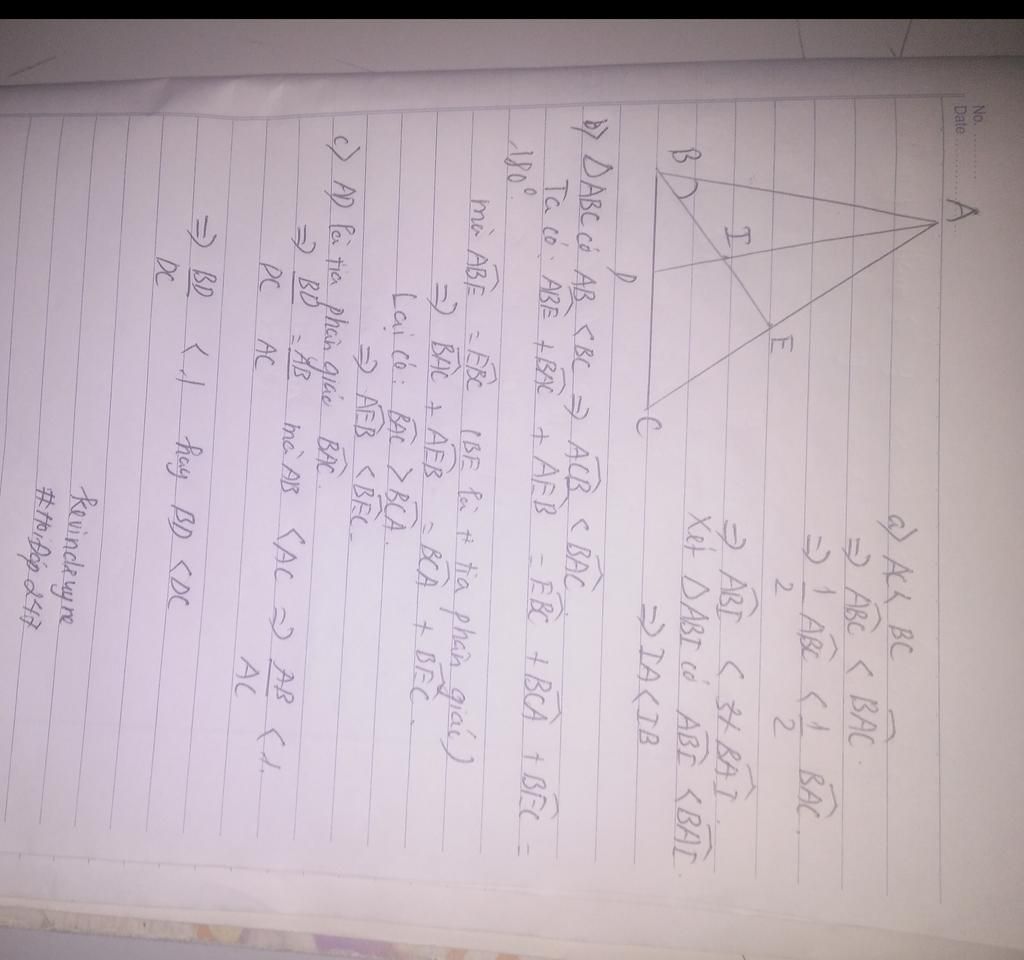 No.
Date
A
B
I
E
D
C
a) AC < BC
⇒ \widehat{ABC} < \widehat{BAC}.
⇒ \frac{1}{2} \widehat{ABC} < \frac{1}{2} \widehat{BAC}.
⇒ \widehat{ABI} < \widehat{BAI}.
Xét △ABI có \widehat{ABI} < \widehat{BAI}.
⇒ IA < IB
b) △ABC có AB < BC ⇒ \widehat{ACB} < \widehat{BAC}
Ta có: \widehat{ABE} + \widehat{BAC} + \widehat{AEB} = \widehat{EBC} + \widehat{BCA} + \widehat{BEC} =
180°.
mà \widehat{ABE} = \widehat{EBC} (BE là tia phân giác)
⇒ \widehat{BAC} + \widehat{AEB} = \widehat{BCA} + \widehat{BEC}.
Lại có: \widehat{BAC} > \widehat{BCA}.
⇒ \widehat{AEB} < \widehat{BEC}.
c) AD là tia phân giác \widehat{BAC}.
⇒ \frac{BD}{DC} = \frac{AB}{AC} mà AB < AC ⇒ \frac{AB}{AC} < 1.
⇒ \frac{BD}{DC} < 1 hay BD < DC
kevindevyne